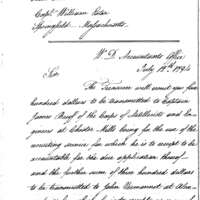 Capt. William
Springfield Massachusetts
W. D. Accountants Office
July 12th 1794
Sir
The Treasurer will send you five
hundred dollars to be transmitted to Captain
James Bruff of the Corps of Artillerists and En-
gineers at Chester Mills being for the use of the
recruiting service for which he is to except to be
accountable for the due application thereof
and the further sum of three hundred dollars
to be transmitted to John at Alex-